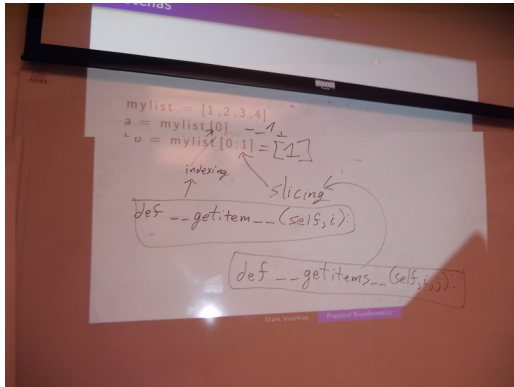 mylist = [1,2,3,4]
a = mylist[0] -- 1
b = mylist[0:1] = [1]
indexing
slicing
def __getitem__(self,i):
def __getitems__(self,i,j):
Mark Voorhies Practical Bioinformatics